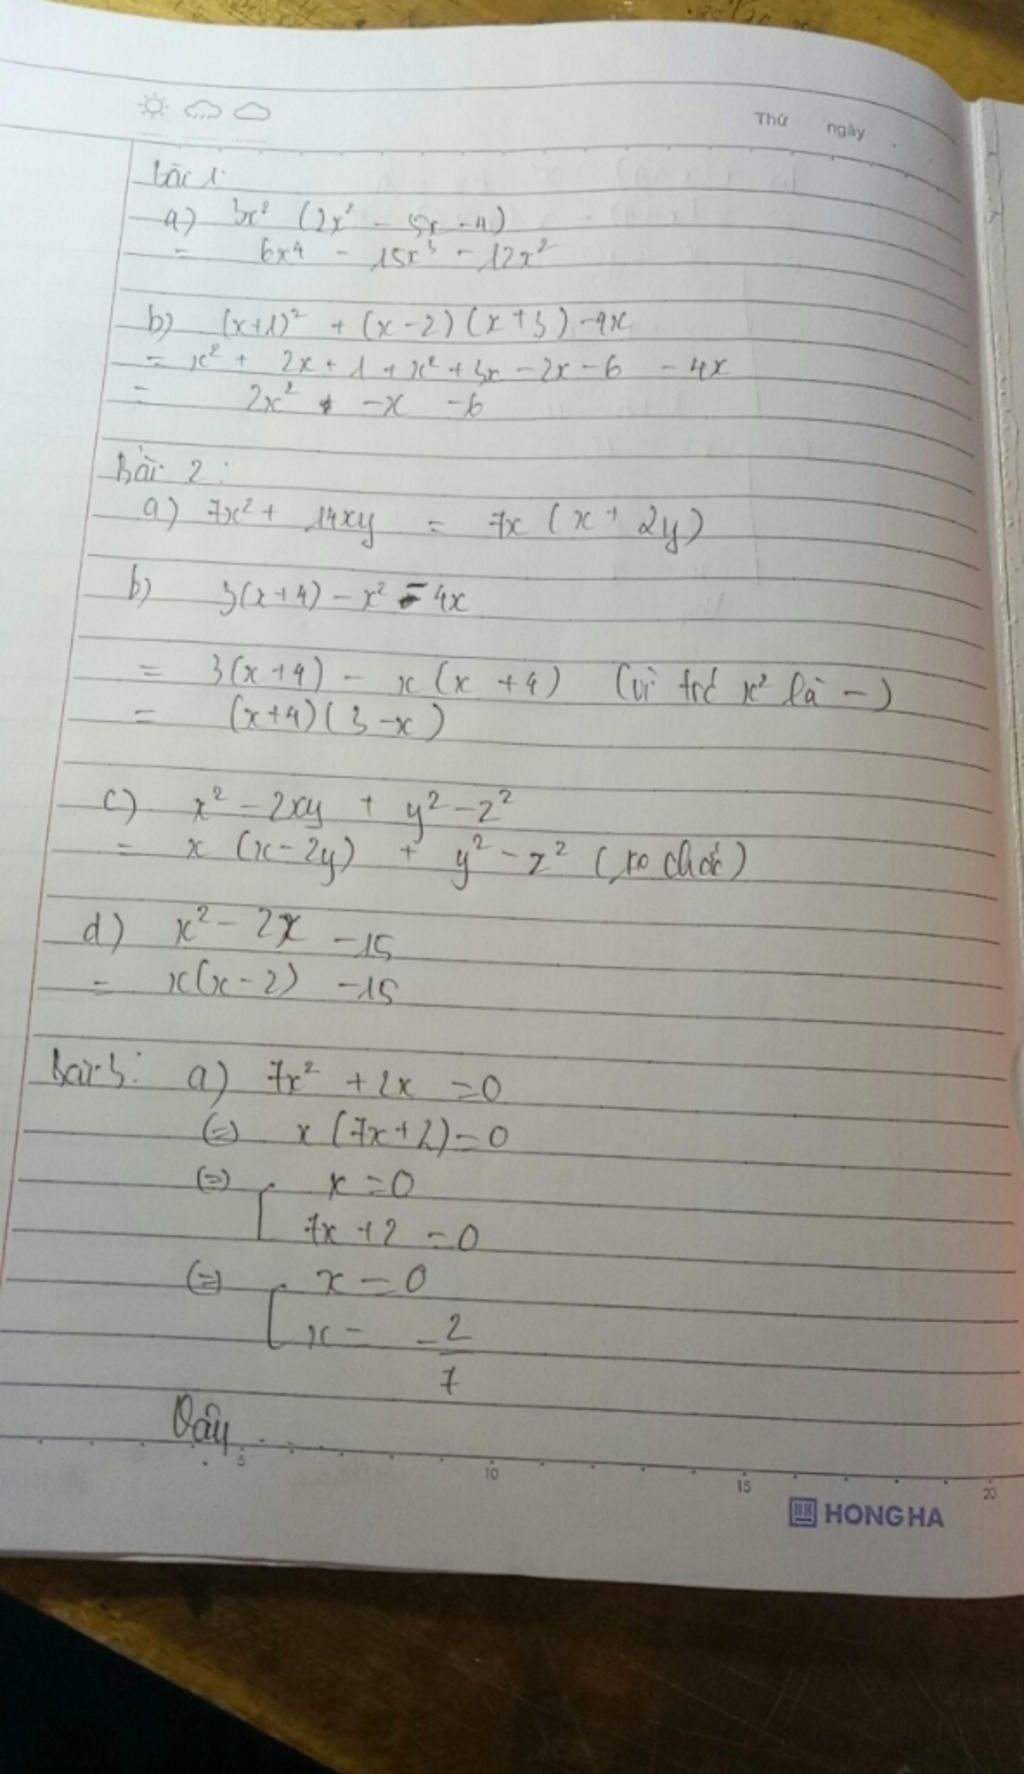 Thứ ngày
Bài 1:
a) 3x² (2x² - 5x - 4)
= 6x⁴ - 15x³ - 12x²
b) (x+1)² + (x-2)(x+3) - 4x
= x² + 2x + 1 + x² + 3x - 2x - 6 - 4x
= 2x² - x - 6
Bài 2:
a) 7x² + 14xy = 7x (x + 2y)
b) 3(x+4) - x² - 4x
= 3(x+4) - x(x+4) (vì trc x² là -)
= (x+4)(3-x)
c) x² - 2xy + y² - z²
= x (x-2y) + y² - z² ( chắc)
d) x² - 2x - 15
= x(x-2) - 15
Bài 3: a) 7x² + 2x = 0
(=) x(7x+2) = 0
(=) [ x = 0
7x + 2 = 0
(=) [ x = 0
x = -2/7
Vậy ...
5 10 15 20
HH HONG HA